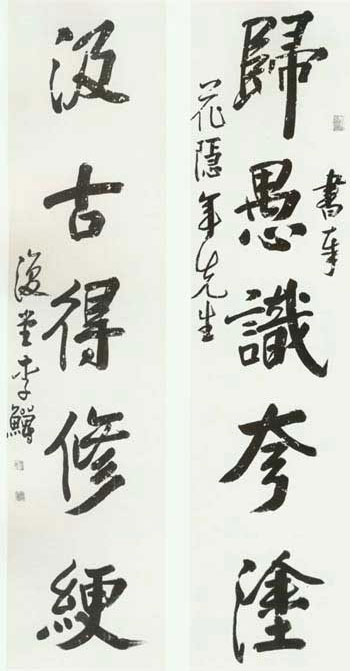 歸愚識夷塗
書奉
花隱年先生
汲古得修綆
復堂李鱓